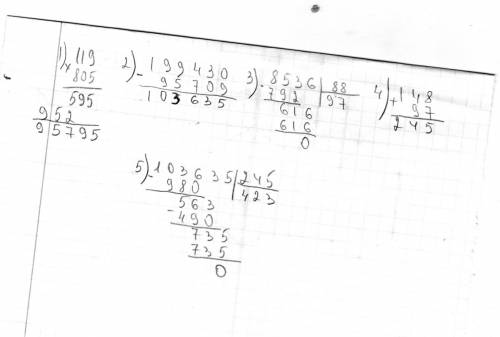 1) × 119
805
595
952
95795
2) - 199430
95709
103635
3) - 8536 | 88
792 | 97
616
616
0
4) + 148
97
245
5) - 103635 | 245
980 | 423
- 563
490
735
735
0